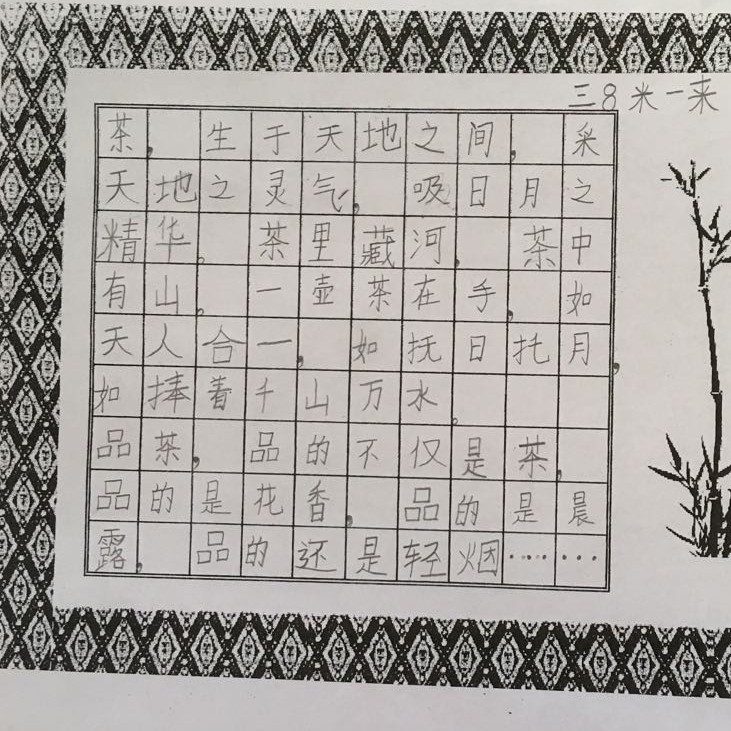 三8米一来
茶，生于天地之间，采
天地之灵气，吸日月之
精华。茶里藏河，茶中
有山。一壶茶在手，如
天人合一，如抚日托月，
如捧着千山万水。
品茶，品的不仅是茶，
品的是花香，品的是晨
露，品的还是轻烟……